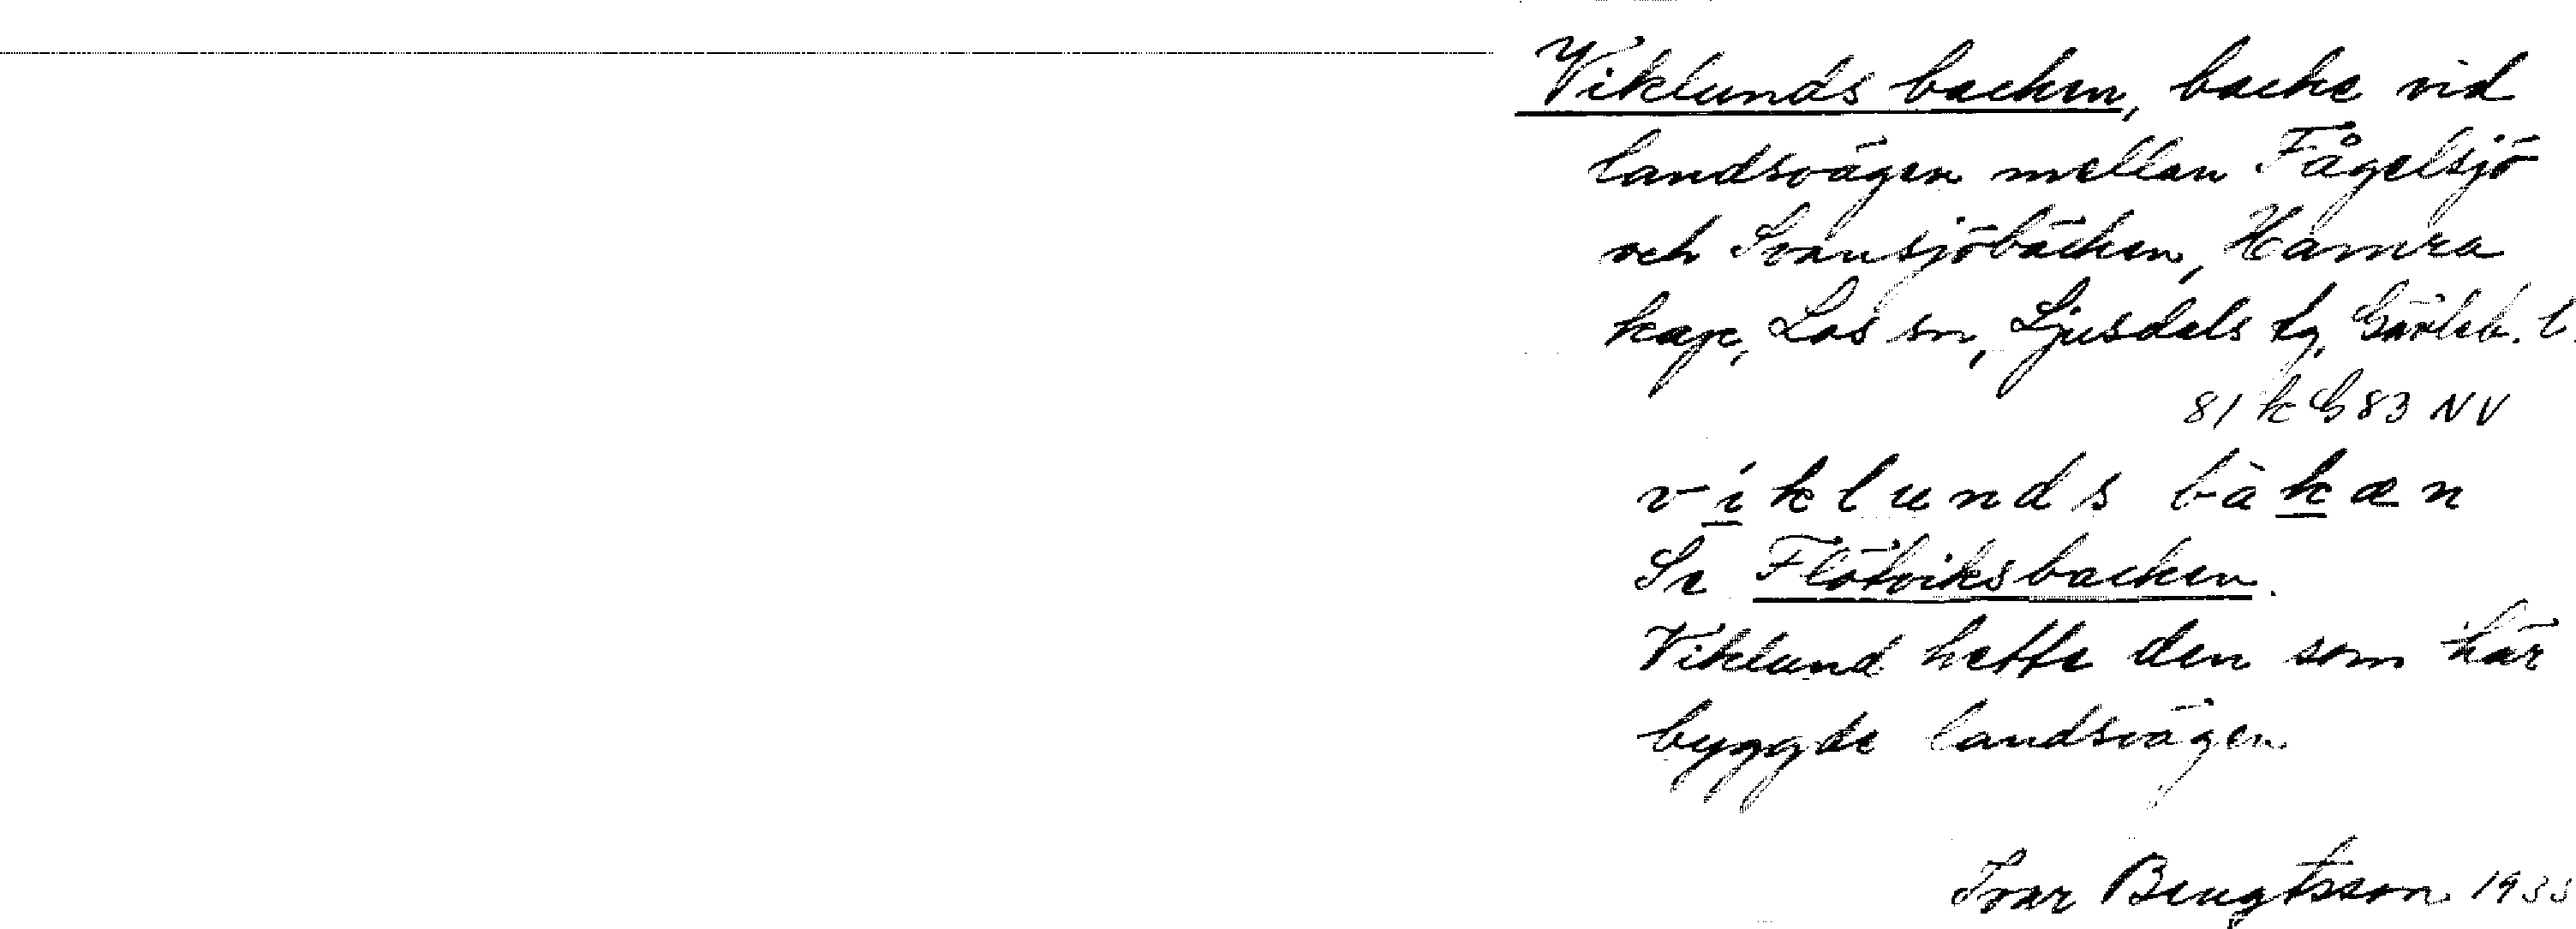 Viklunds backen, backe vid
landsvägen mellan Fågelsjö
och Svansjöbäcken, Hamra
kap, Los sn, Ljusdals tg, Gävleb. l.
81 k G 83 NV
viklunds bàkæn
Se Flötviksbacken.
Viklund hette den som här
byggde landsvägen.
Ivar Bengtsson